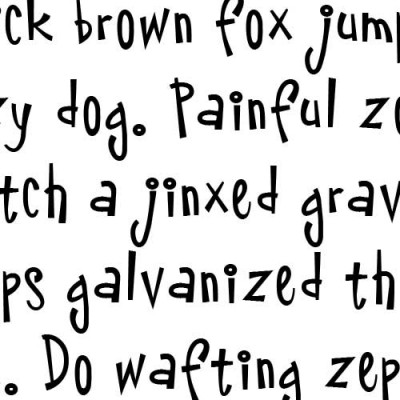 ck brown fox jump
zy dog. Painful zo
tch a jinxed grav
ps galvanized th
. Do wafting zep